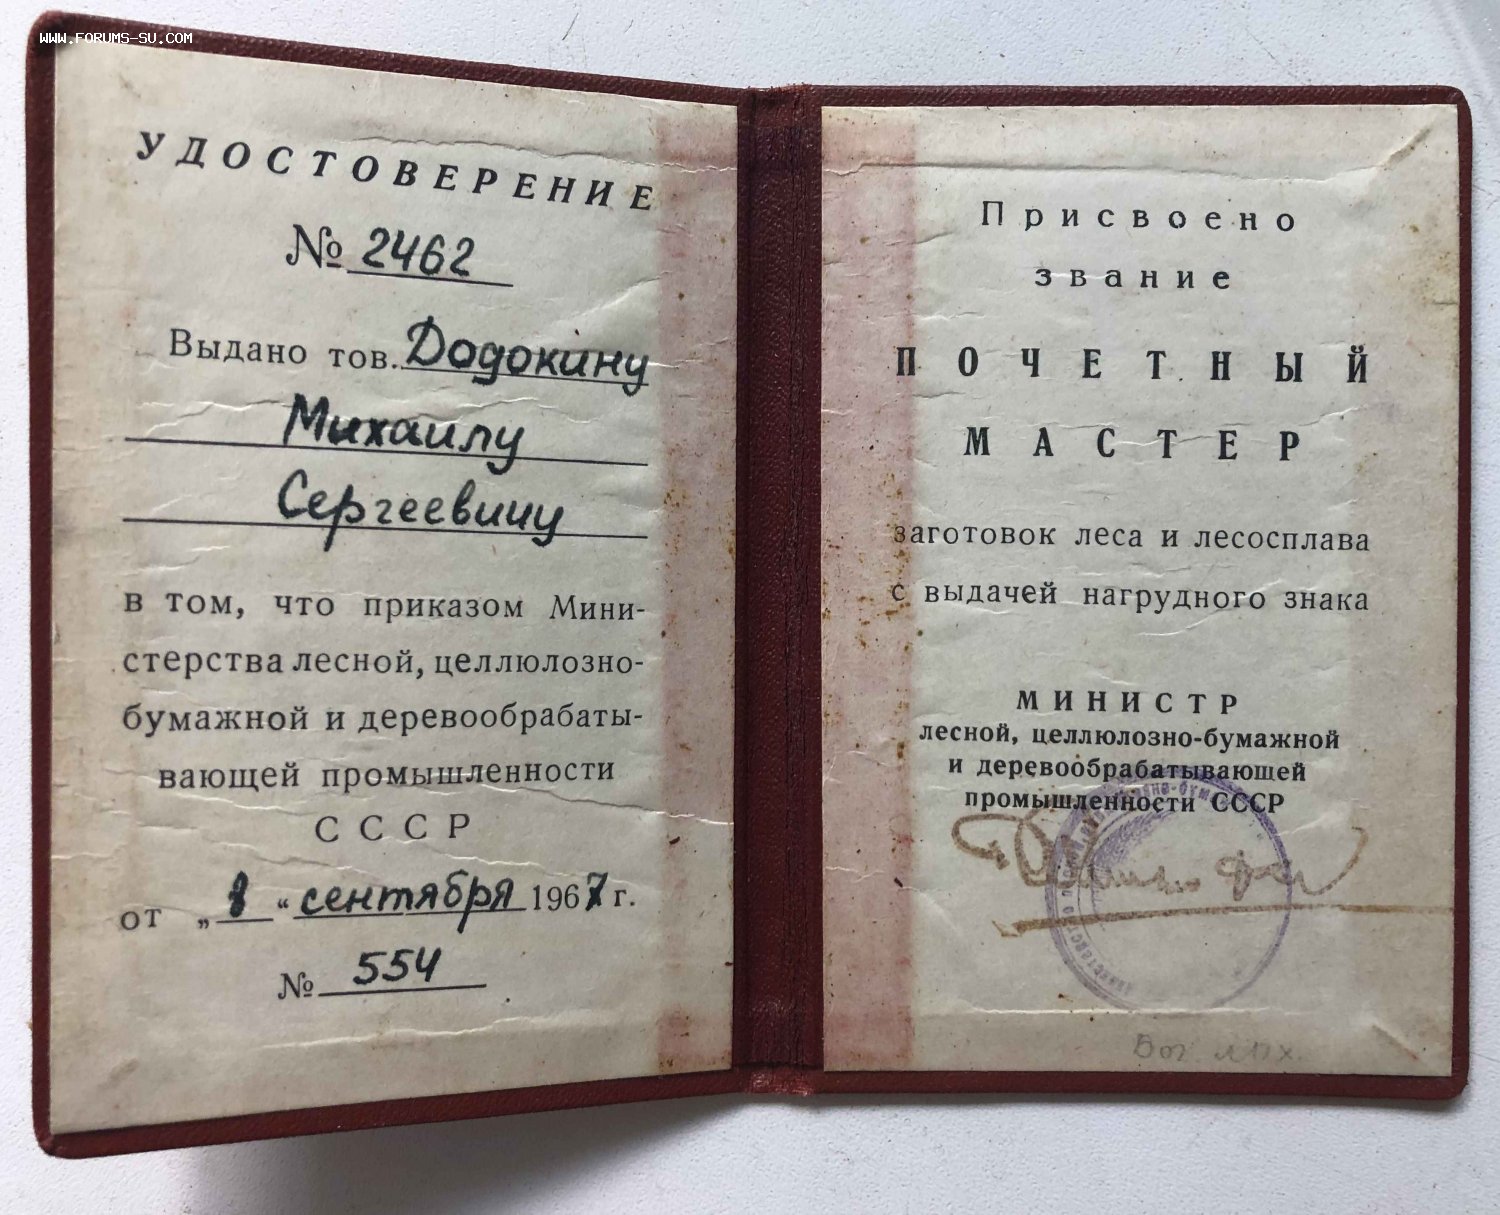 WWW.FORUMS-SU.COM
УДОСТОВЕРЕНИЕ
№ 2462
Выдано тов. Додокину
Михаилу
Сергеевичу
в том, что приказом Мини-
стерства лесной, целлюлозно-
бумажной и деревообрабаты-
вающей промышленности
СССР
от „ 1 “ сентября 1967 г.
№ 554
Присвоено
звание
ПОЧЕТНЫЙ
МАСТЕР
заготовок леса и лесосплава
с выдачей нагрудного знака
МИНИСТР
лесной, целлюлозно-бумажной
и деревообрабатывающей
промышленности СССР